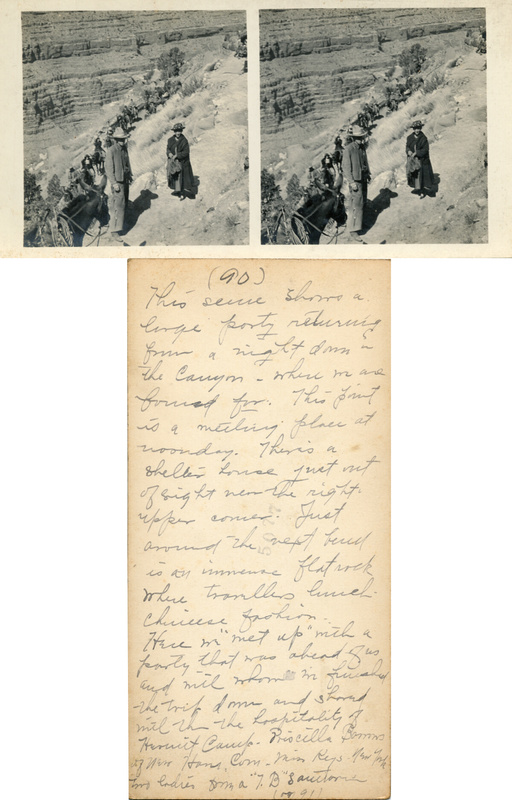 (90)
This scene shows a
large party returning
from a night down in
the Canyon - where we are
bound for. This point
is a meeting place at
noonday. There's a
shelter house just out
of sight near the right
upper corner. Just
around the next bend
is an immense flat rock
where travellers lunch
chinese fashion.
Here we "met up" with a
party that was ahead of us
and with whom we finished
the trip down and shared
with them the hospitality of
Hermit Camp - Priscilla
of New Haven, Conn - Miss Keys - New York
two ladies from a "T.B" Sanitarium
(or 91)